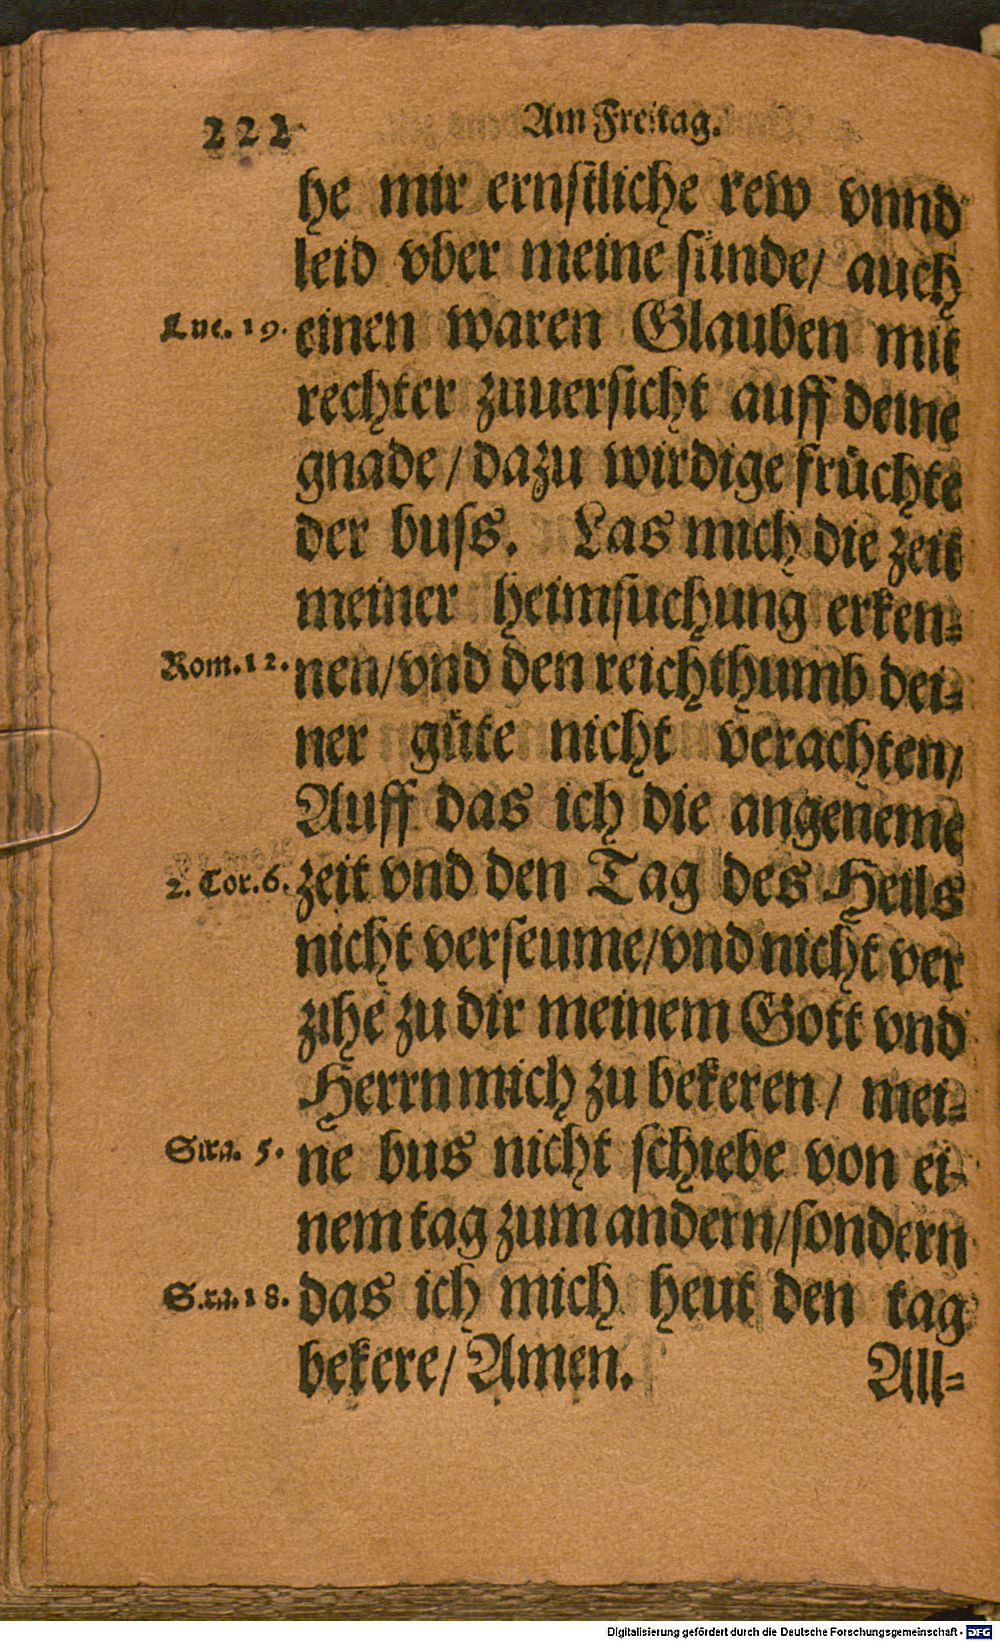 222 Am Freitag.
he mir ernstliche rew vnnd
leid vber meine sünde/ auch
Luc. 19. einen waren Glauben mit
rechter zuuersicht auff deine
gnade/ dazu wirdige früchte
der buss. Las mich die zeit
meiner heimsuchung erken=
Rom. 12. nen/vnd den reichthumb dei=
ner güte nicht verachten/
Auff das ich die angeneme
2. Cor. 6. zeit vnd den Tag des Heils
nicht verseume/vnd nicht ver
zihe zu dir meinem Gott vnd
Herrn mich zu bekeren/ mei=
Sira. 5. ne bus nicht schiebe von ei=
nem tag zum andern/sondern
Sira. 18. das ich mich heut den tag
bekere/ Amen. All=
Digitalisierung gefördert durch die Deutsche Forschungsgemeinschaft - DFG